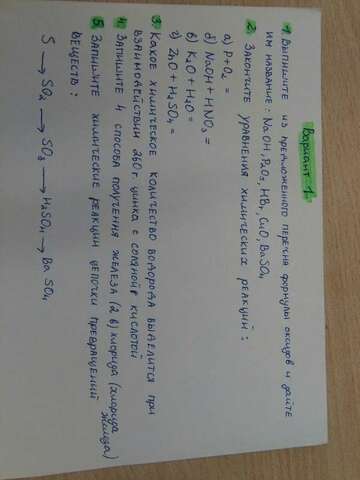 Вариант 1.
1. Выпишите из предложенного перечня формулы оксидов и дайте
им название: NaOH, P₂O₅, HBr, CuO, BaSO₄
2. Закончите уравнения химических реакций:
а) P + O₂ =
б) NaOH + HNO₃ =
в) K₂O + H₂O =
г) ZnO + H₂SO₄ =
3. Какое химическое количество водорода выделится при
взаимодействии 260 г. цинка с соляной кислотой
4. Запишите 4 способа получения железа (2 в) хлорида (хлорида
железа)
5. Запишите химические реакции цепочки превращений
веществ:
S → SO₂ → SO₃ → H₂SO₄ → BaSO₄